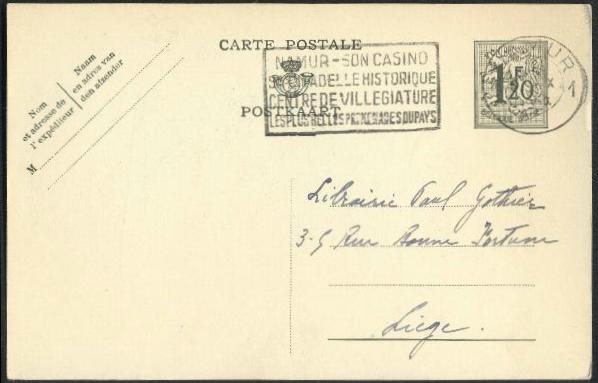 CARTE POSTALE
NAMUR-SON CASINO
CITADELLE HISTORIQUE
CENTRE DE VILLEGIATURE
LES PLUS BELLES PROMENADES DU PAYS
POSTKAART
1F20
1
Naam
en adres van
den afzender
Nom
et adresse de
l'expéditeur
M
Librairie Paul Gothier
3-5 Rue Bonne Fortune
Liège.